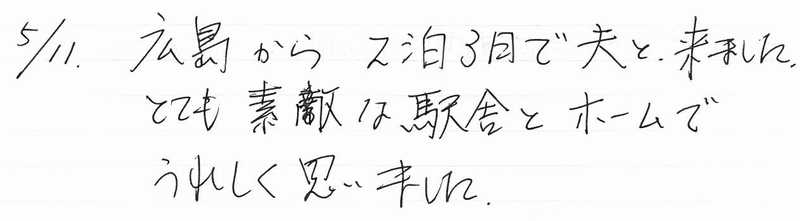 5/11. 広島から 2泊3日で夫と来ました.
とても素敵な駅舎とホームで
うれしく思いました.